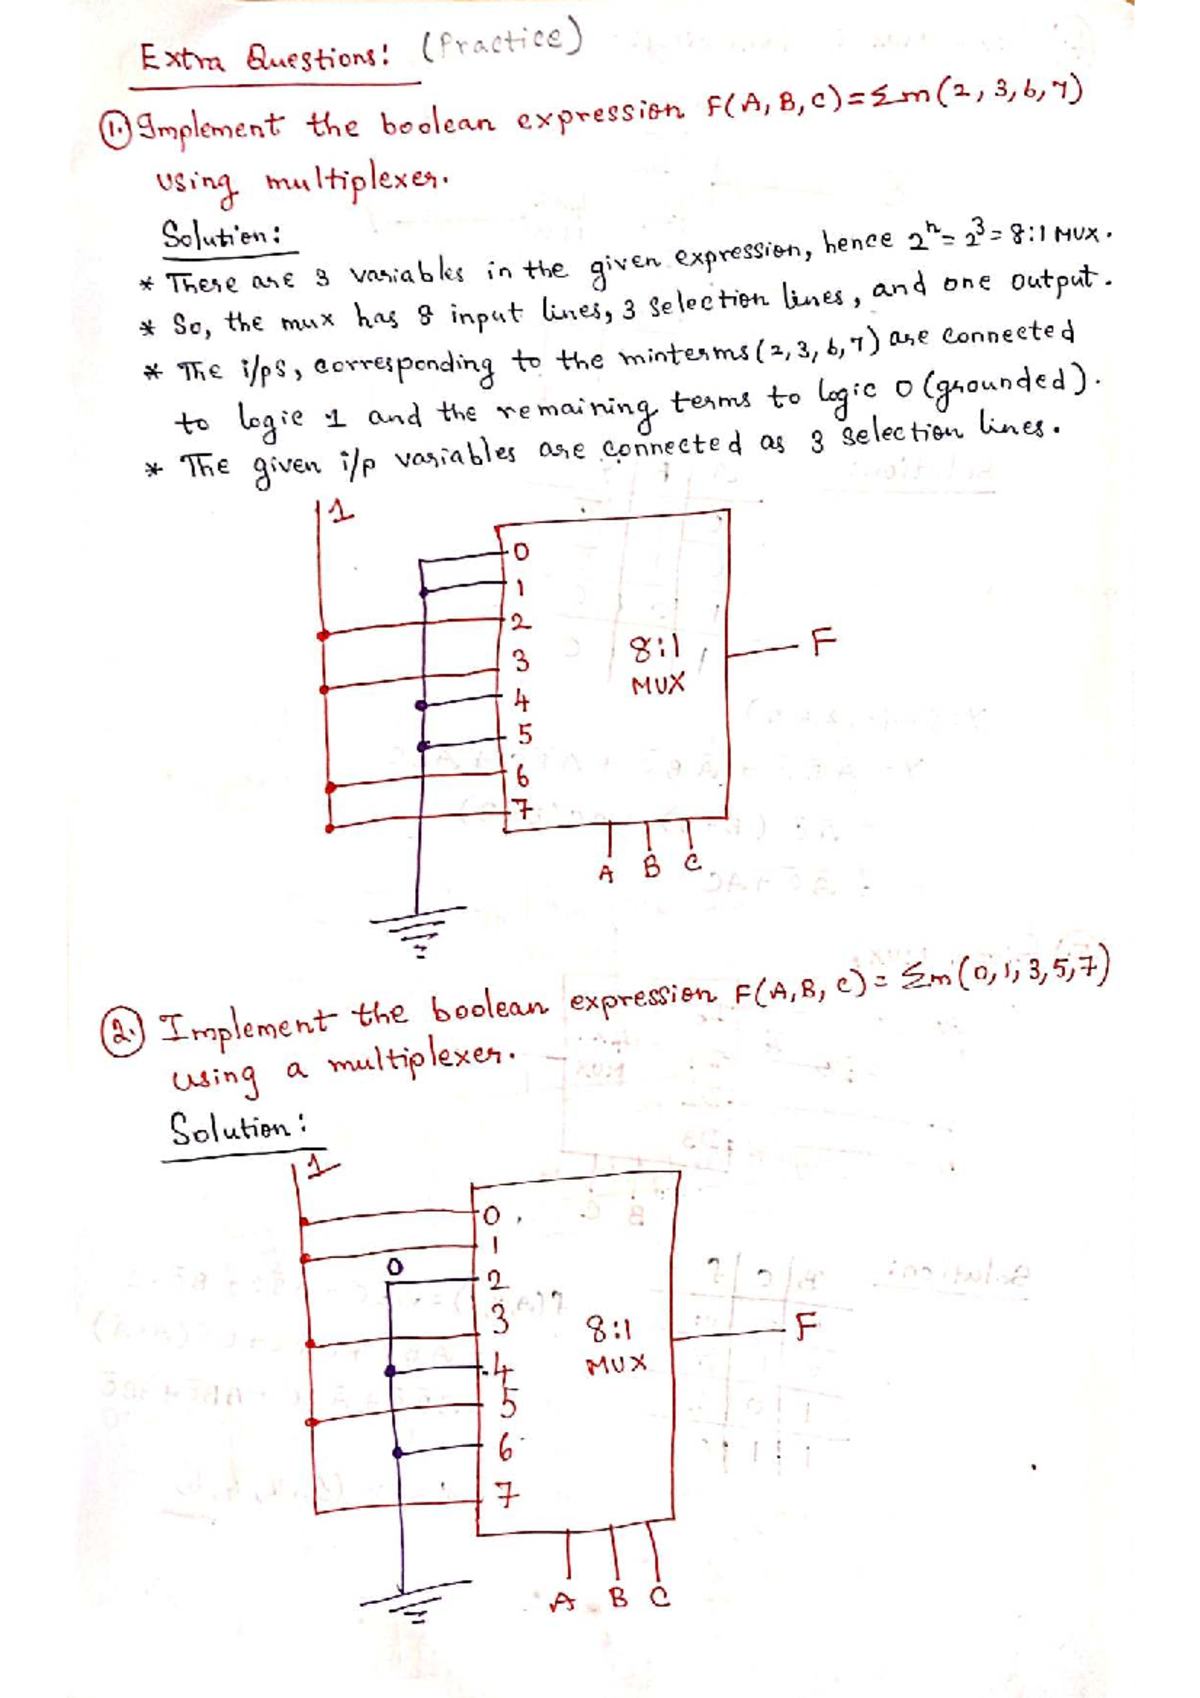 Extra Questions: (Practice)
1. Implement the boolean expression F(A, B, C) = Σm(2, 3, 6, 7)
using multiplexer.
Solution:
* There are 3 variables in the given expression, hence 2^n = 2^3 = 8:1 MUX.
* So, the mux has 8 input lines, 3 selection lines, and one output.
* The i/ps, corresponding to the minterms (2, 3, 6, 7) are connected
to logic 1 and the remaining terms to logic 0 (grounded).
* The given i/p variables are connected as 3 selection lines.
1
0
1
2
3
4
5
6
7
8:1
MUX
F
A B C
2. Implement the boolean expression F(A, B, C) = Σm(0, 1, 3, 5, 7)
using a multiplexer.
Solution:
1
0
0
1
2
3
4
5
6
7
8:1
MUX
F
A B C